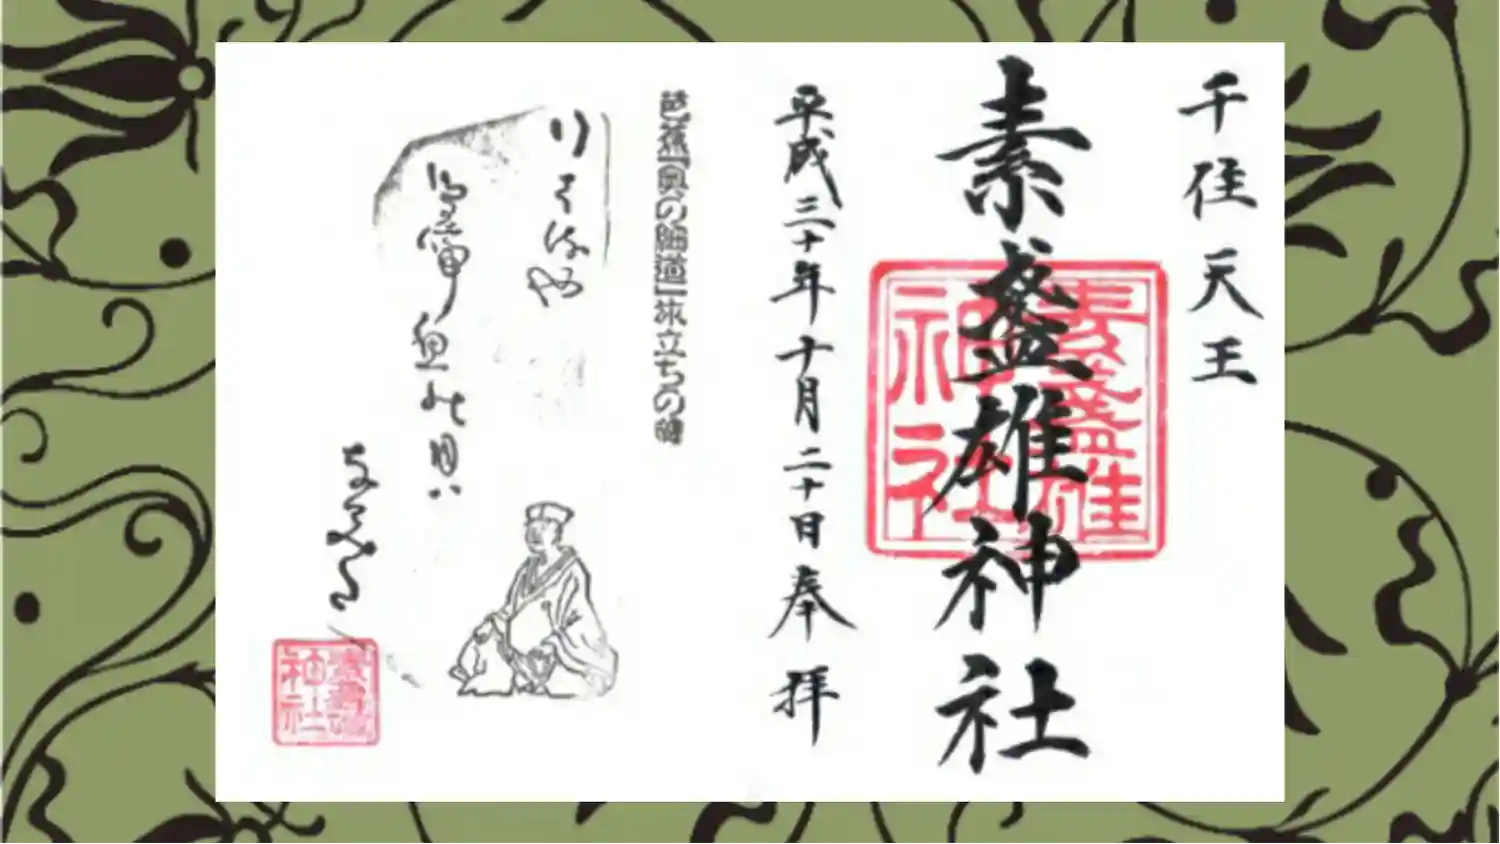 千住天王
素盞雄神社
素盞雄
神社
平成三十年十月二十日奉拝
芭蕉「奥の細道」旅立ちの碑
行はるや
鳥啼魚の目ハ
なみだ
素盞雄
神社